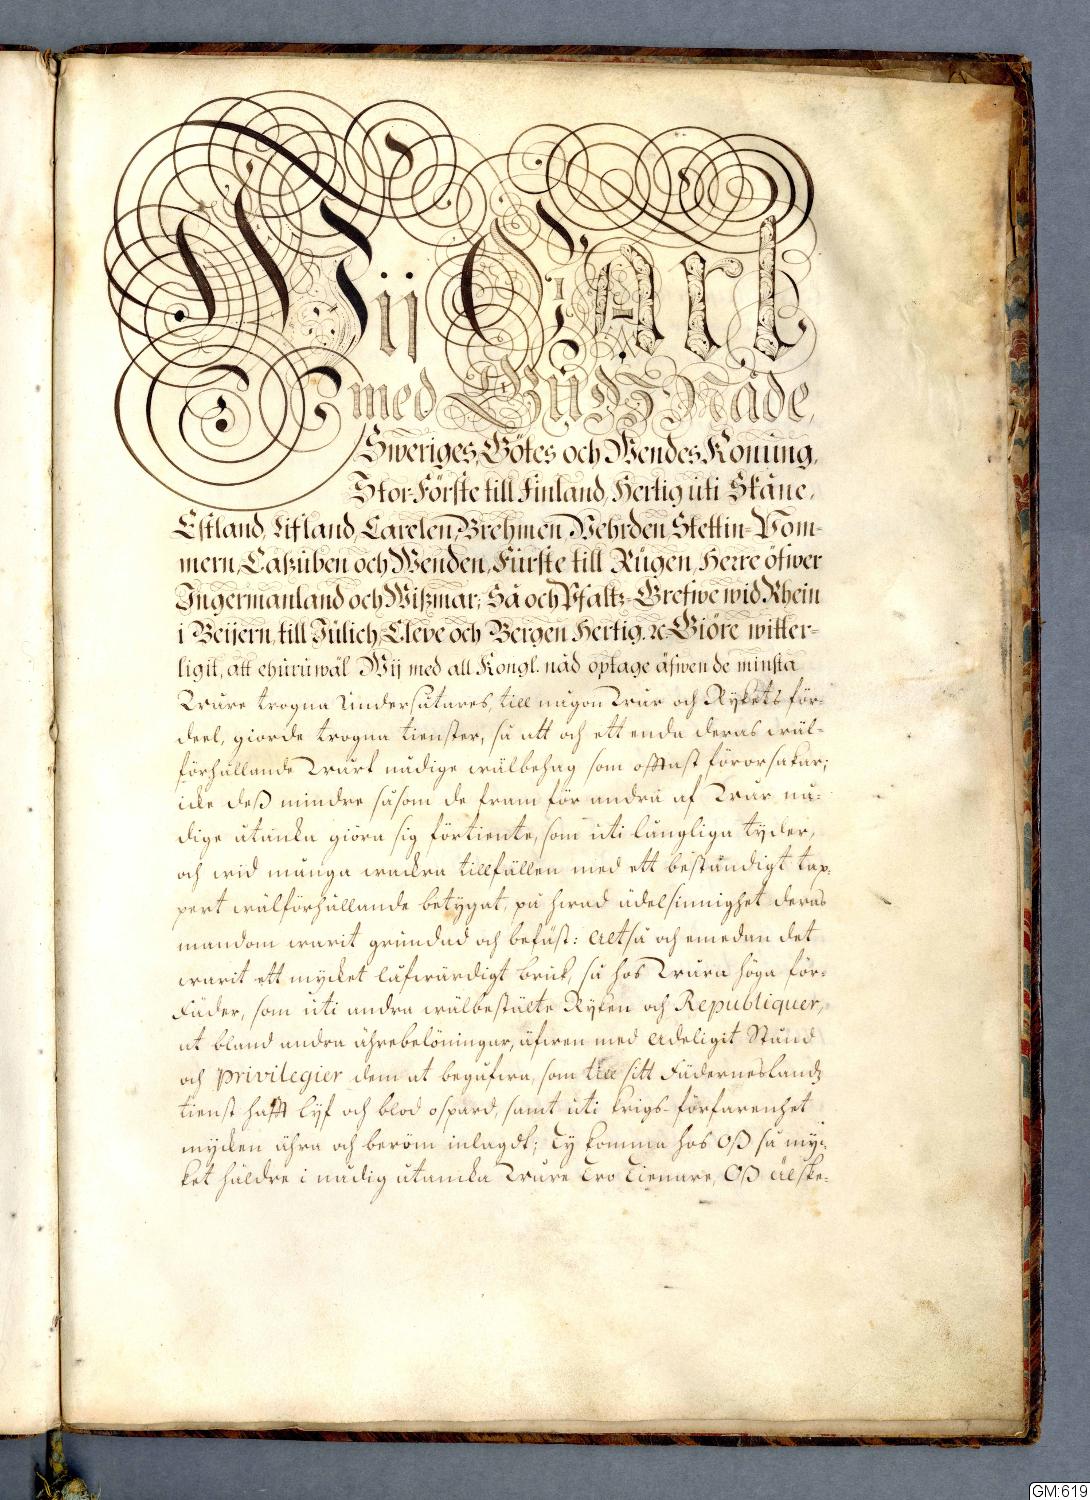 Wij Carl
med Gudz Nåde,
Sweriges, Götes och Wendes Konung,
Stor-Förste till Finland, Hertig uti Skåne,
Estland, Lifland, Carelen, Brehmen Vehrden, Stettin-Pom-
mern, Caßuben och Wenden, Fürste till Rügen, Herre öfwer
Ingermanland och Wißmar; Så och Pfaltz-Grefwe wid Rhein
i Beijern, till Jülich, Cleve och Bergen Hertig. &c Giöre witter-
ligit, att ehuruwäl Wij med all Kongl. nåd optage äfwen de minsta
Wåre trogna Undersåtares, till någon Wår och Rykets för-
deel, giorde trogna tienster, så att och ett enda deras wäl-
förhållande Wårt nådige wälbehag som offtast förorsakar;
icke deß mindre såsom de fram för andra af Wår nå-
dige åtanka giöra sig förtiente, som uti långliga tyder,
och wid många wackra tillfällen med ett beständigt tap-
pert wälförhållande betygat, på hwad ädelsinnighet deras
mandom warit grundad och befäst: Altså och emedan det
warit ett mycket låfwärdigt bruk, så hos Wåra höga för-
Fäder, som uti andra wälbestälte Ryken och Republiquer,
at bland andra ährebelöningar, äfwen med Adeligit Stånd
och Privilegier dem at begåfwa, som till sitt Fäderneslandz
tienst hafft lyf och blod ospard, samt uti krigs-förfarenhet
mycken ähra och beröm inlagdt; Ty komma hos Oß så myc-
ket häldre i nådig åtanka Wåre Tro Tienare, Oß älske-
GM:619